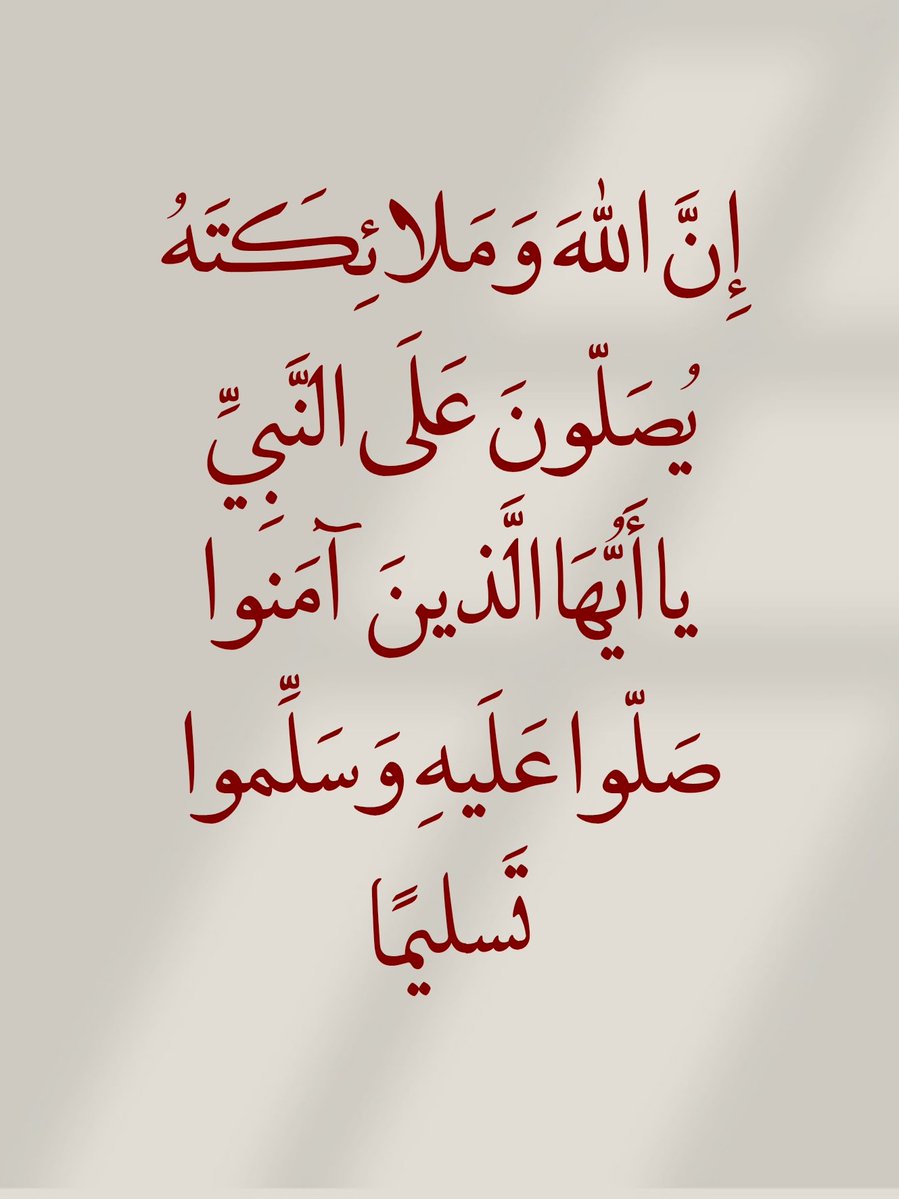 إِنَّ اللهَ وَمَلائِكَتَهُ
يُصَلّونَ عَلَى النَّبِيِّ
يا أَيُّهَا الَّذينَ آمَنوا
صَلّوا عَلَيهِ وَسَلِّموا
تَسليمًا